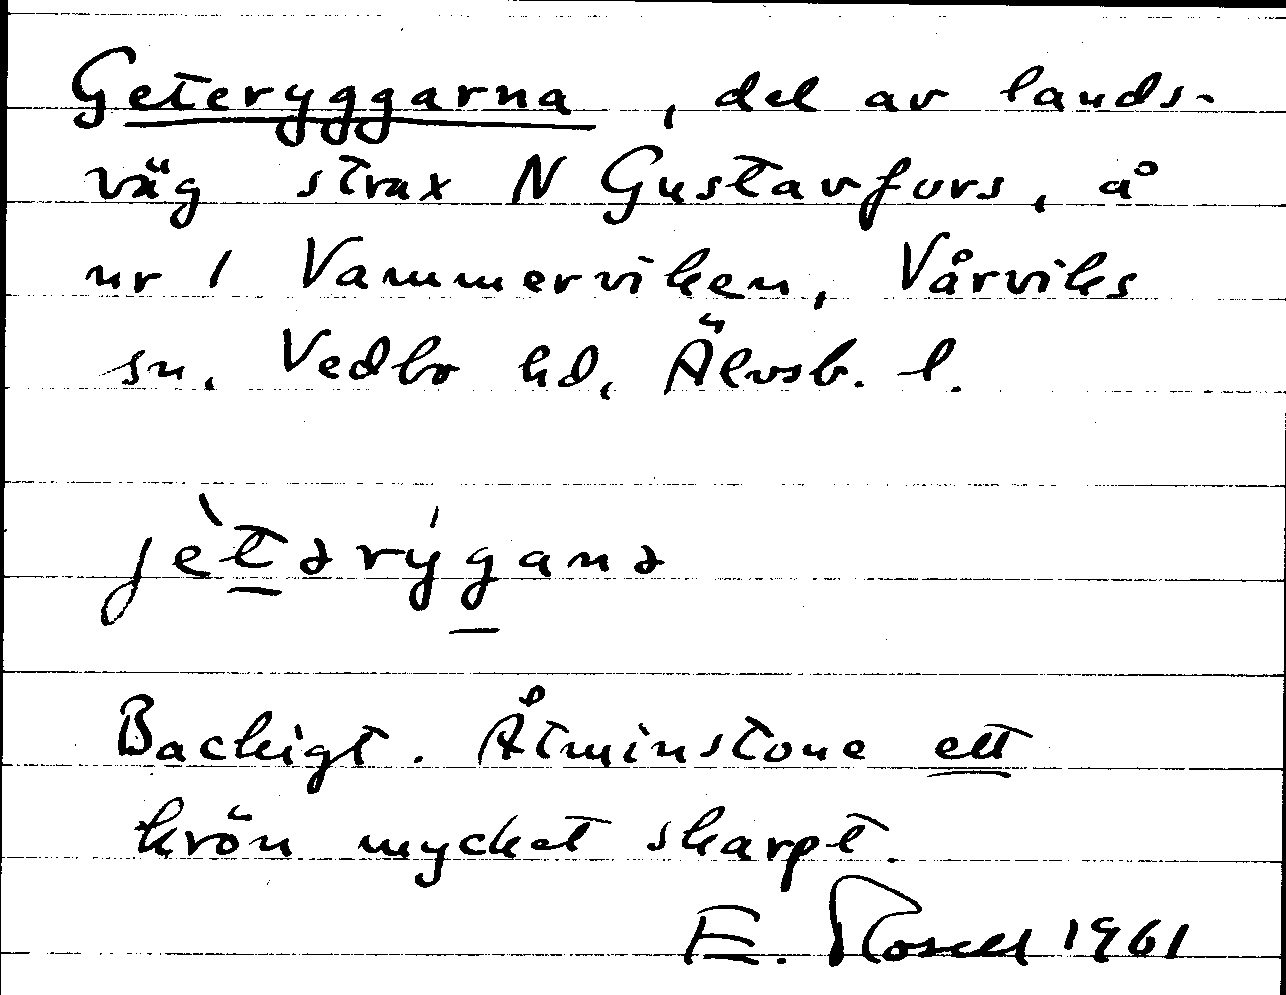 Geteryggarna, del av lands-
väg strax N Gustavfors, å
nr 1 Vammerviken, Vårviks
sn, Vedbo hd, Älvsb. l.
jètərýganə
Backigt. Åtminstone ett
krön mycket skarpt.
E. Rosell 1961